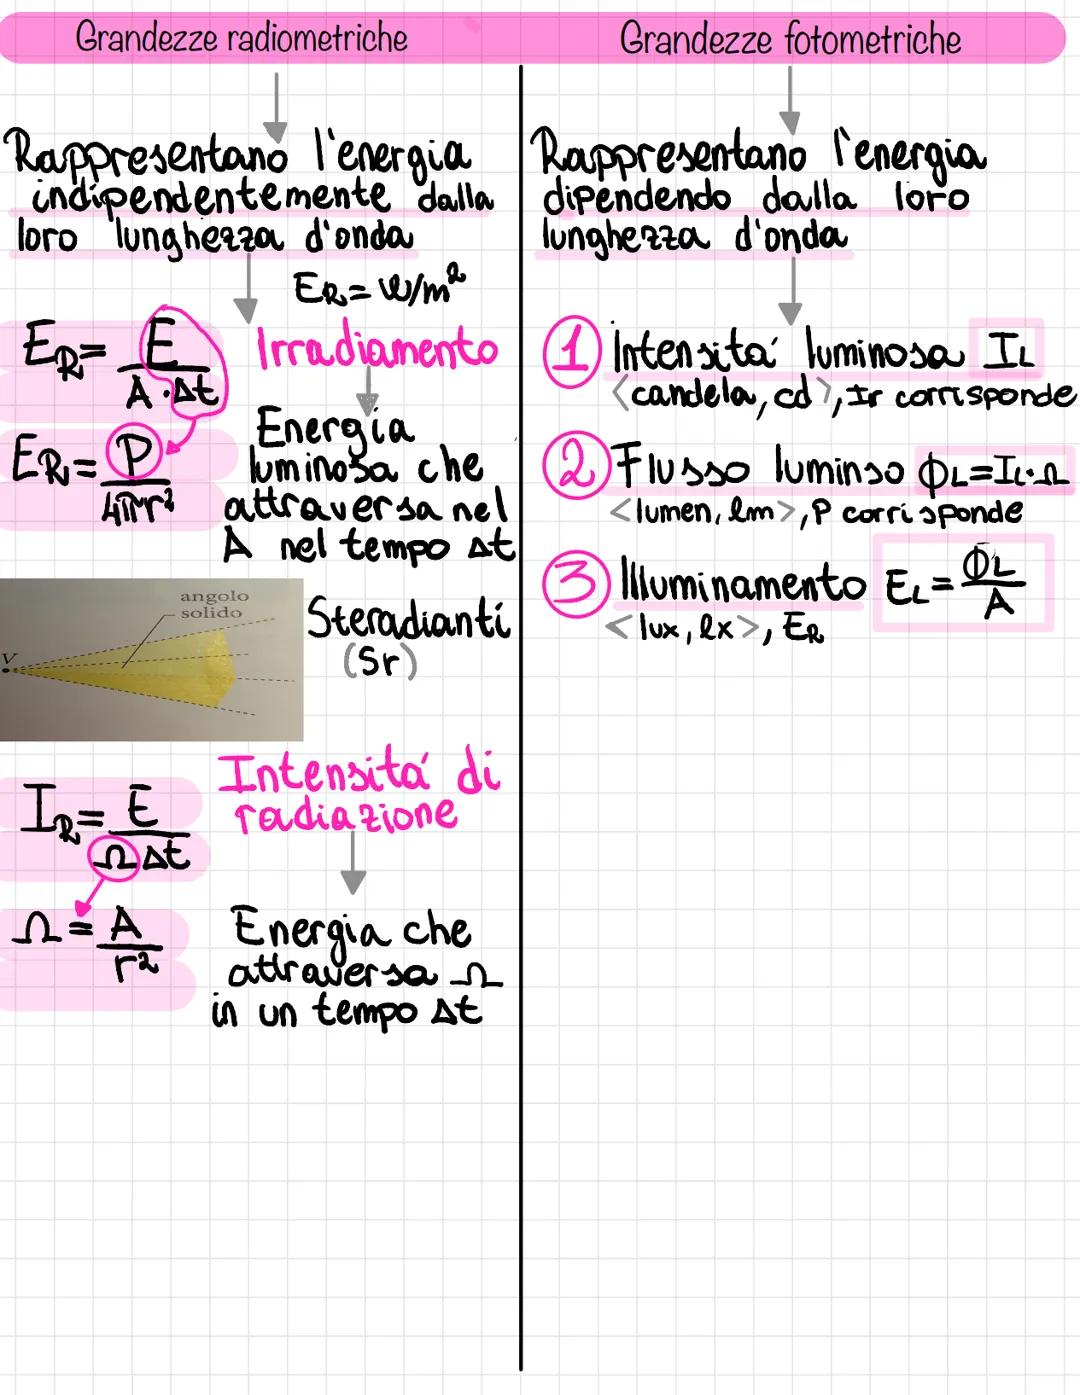 Grandezze radiometriche
Rappresentano l'energia
indipendentemente dalla
loro lunghezza d'onda
ER = W/m²
ER = E / A·Δt
Irradiamento
ER = P / 4πr²
Energia
luminosa che
attraversa nel
A nel tempo Δt
angolo
solido
V
Steradianti
(Sr)
Intensitá di
radiazione
IR = E / Ω Δt
Ω = A / r²
Energia che
attraversa Ω
in un tempo Δt
Grandezze fotometriche
Rappresentano l'energia
dipendendo dalla loro
lunghezza d'onda
1 Intensitá luminosa IL
<candela, cd>, Ir corrisponde
2 Flusso luminso ΦL=IL·Ω
<lumen, lm>, P corrisponde
3 Illuminamento EL = ΦL / A
<lux, lx>, ER